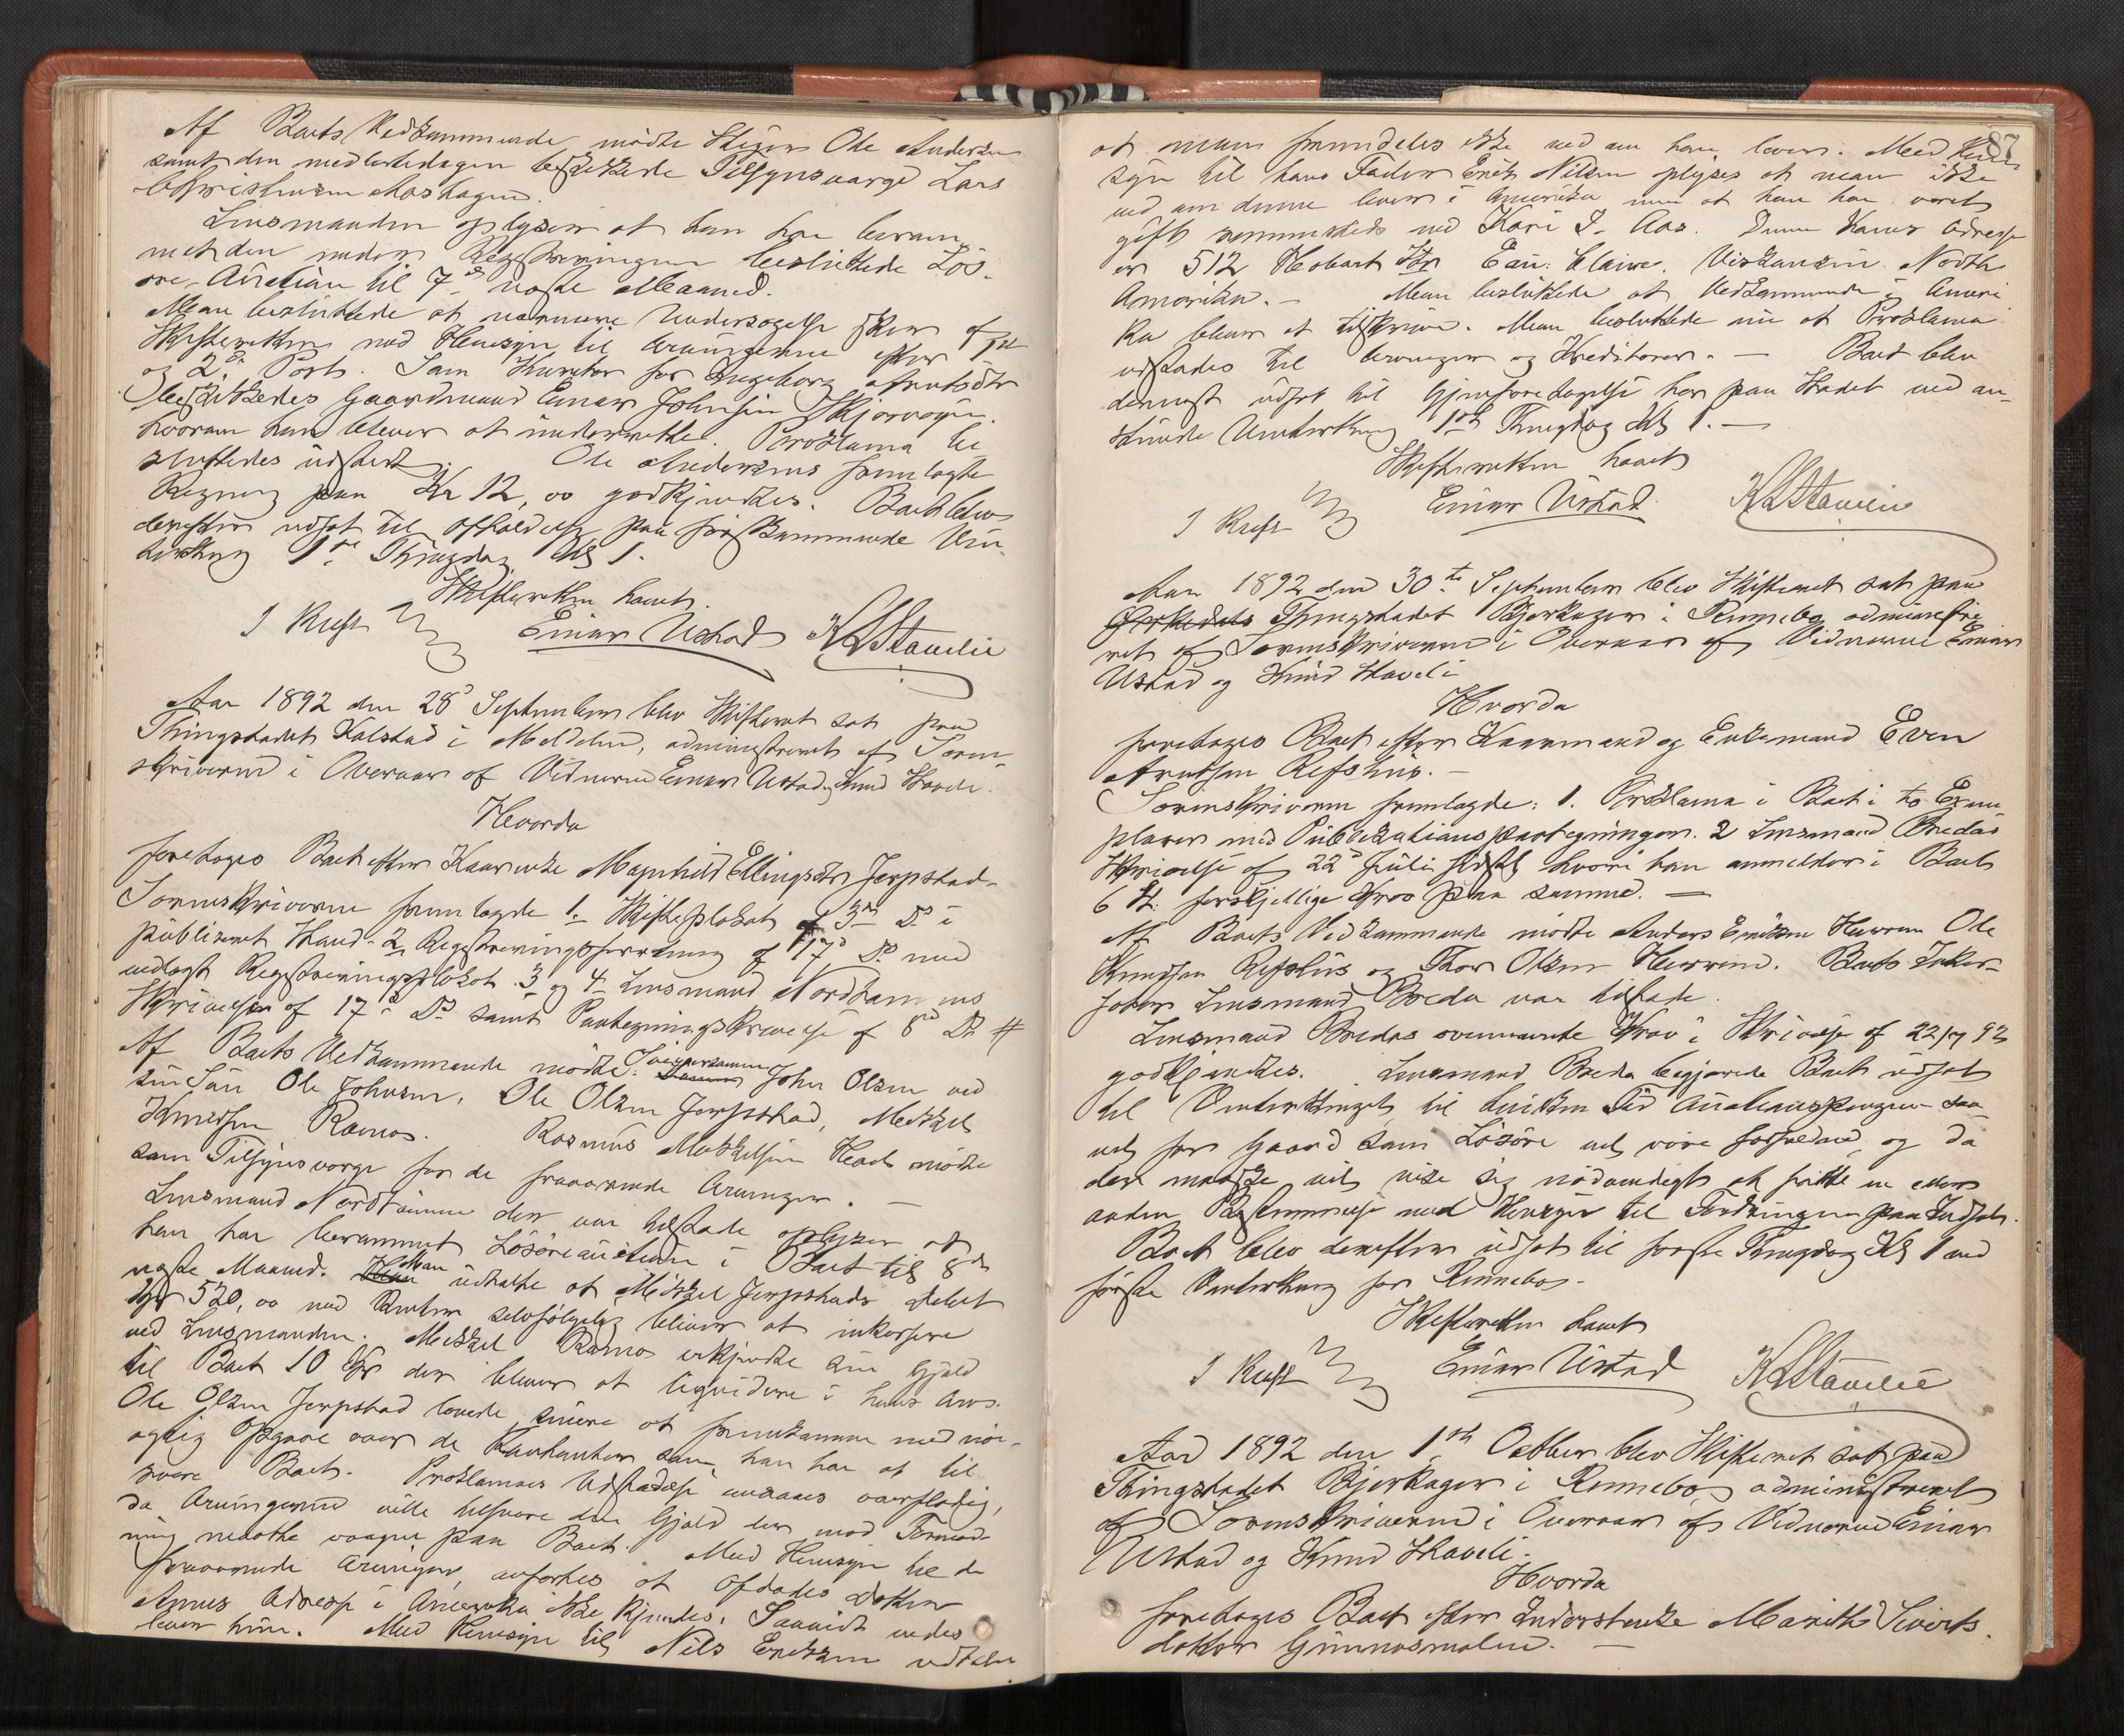 Af Boets Vedkommende mødte Skiger Ole Andersen
samt den medlertidigen beskikkede Tilsynsværge Lars
Christensen Moshagen.
Lensmanden oplyser at han har beram-
met den under Registreringen besluttede Løs-
øre-Auction til 7de næste Maaned.
Man besluttede at nærmere Undersøgelse sker af
Skifteretten med Hensyn til Arvingerne efter 1ste
og 2de Part. Som Kurator for Ingeborg Arntsdtr
beskikkedes Gaardmand Einar Johnsen Skjørvagen
hvorom han bliver at underrette. Proklama be
sluttedes udstedt. Ole Andersens fremlagte
Regning paa Kr 12,00 godkjendtes. Boet blev
derefter udsat til Ophold paa førstkommende Vin-
terthing 1ste Thingdag Kl 1.
Skifteretten hævet.
I Rust Einar Ustad K L Stavlie
Aar 1892 den 28de September blev Skifteret sat paa
Thingstedet Kalstad i Meldalen, administreret af Soren-
skriveren i Overvær af Vidnerne Einar Ustad og Knud Stavli.
Hvorda
foretages Boet efter Kaarenke Magnhild Ellingsdtr Jerpstad.
Sorenskriveren fremlagde 1. Skifteplakat af 3die Ds i
publiceret Stand. 2 Registreringsforretning af 17de Ds med
vedlagt Registreringsplakat. 3 og 4 Lensmand Nordtømmes
Skrivelse af 17de Ds samt Paategningsskrivelse af 8de Ds #
Af Boets Vedkommende mødte: Svigersønnen John Olsen ved
sin Søn Ole Johnsen, Ole Olsen Jerpstad, Mekkel
Knudsen Ramos. Rasmus Mekkelsen Hoel mødte
som Tilsynsværge for de fraværende Arvinger. —
Lensmand Nordtømme der var tilstede oplyser at
han har berammet Løsøreauction i Boet til 8de
næste Maaned. Man udtalte at Mikkel Jerpstads Debet
Kr 520,00 med Renter selvfølgelig bliver at inkassere
ved Lensmanden. Mekkel Ramos erkjendte sin Gjæld
til Boet 10 Kr der bliver at liquidere i hans Arv.
Ole Olsen Jerpstad lovede senere at fremkomme med nøi-
agtig Opgave over de Kontanter som han har at til
svare Boet. Proklamaes Udstedelse ansaaes overflødig,
da Arvingerne ville tilsvare den Gjæld der mod Formod-
ning maatte vaage paa Boet. Med Hensyn til de
fraværende Arvinger, anførtes at Afdødes Datter
Annes Adresse i Amerika ikke kjendes. Saavidt vedes
lever hun. Med Hensyn til Nils Eriksen udtales
87
at man fremdeles ikke ved om han lever. Med Hen-
syn til hans Fader Erik Nilsen oplyses at man ikke
ved om denne lever i Amerika men at han har været
gift sammesteds med Kari J. Aas. Denne Kones Adresse
er 512 Hobart Str Eau: Claire. Viskonsin North
Amerika. — Man besluttede at Vedkommende i Ameri
ka bliver at tilskrive. Man besluttede nu at Proklama
udstedes til Arvinger og Kreditorer. — Boet blev
dernæst udsat til Gjenforetagelse her paa Stedet ved an-
stundende Vinterthing 1ste Thingdag Kl 1. —
Skifteretten hævet
I Rust Einar Ustad K L Stavlie
Aar 1892 den 30te September blev Skifteret sat paa
Thingstedet Bjerkager i Rennebo administre
ret af Sorenskriveren i Overvær af Vidnerne Einar
Ustad og Knud Stavli
Hvorda
foretages Boet efter Kaarmand og Enkemand Even
Arntsen Refshus. —
Sorenskriveren fremlagde: 1. Proklama i Boet i to Exem
plarer med Publikationspaategninger. 2 Lensmand Bredes
Skrivelse af 22de Juli sidstl hvori han anmelder i Boet
6 St. forskjellige Krav paa samme. —
Af Boets Vedkommende mødte Anders Eriksen Haarrem Ole
Knudsen Refshus og Thor Olsen Haarrem. Boets Inkas-
sator Lensmand Brede var tilstede.
Lensmand Bredes ovennævnte Krav i Skrivelse af 22/7 92
godkjendtes. Lensmand Brede begjærede Boet udsat
til Vinterthinget, til hvilken Tid Auctionspengene saa-
vel for Gaard som Løsøre vil være forfaldne, og da
det maaske vil vise sig nødvendigt at fatte en eller
anden Bestemmelse med Hensyn til Fordringen paa Indsat.
Boet blev derefter udsat til første Thingdag Kl 1 ved
første Vinterthing for Rennebo.
Skifteretten hævet
I Rust Einar Ustad K L Stavlie
Aar 1892 den 1ste October blev Skifteret sat paa
Thingstedet Bjerkager i Rennebo, administreret
af Sorenskriveren i Overvær af Vidnerne Einar
Ustad og Knud Stavli.
Hvorda
foretages Boet efter Inderstenke Marith Sivirts-
datter Gunnesmoen. —